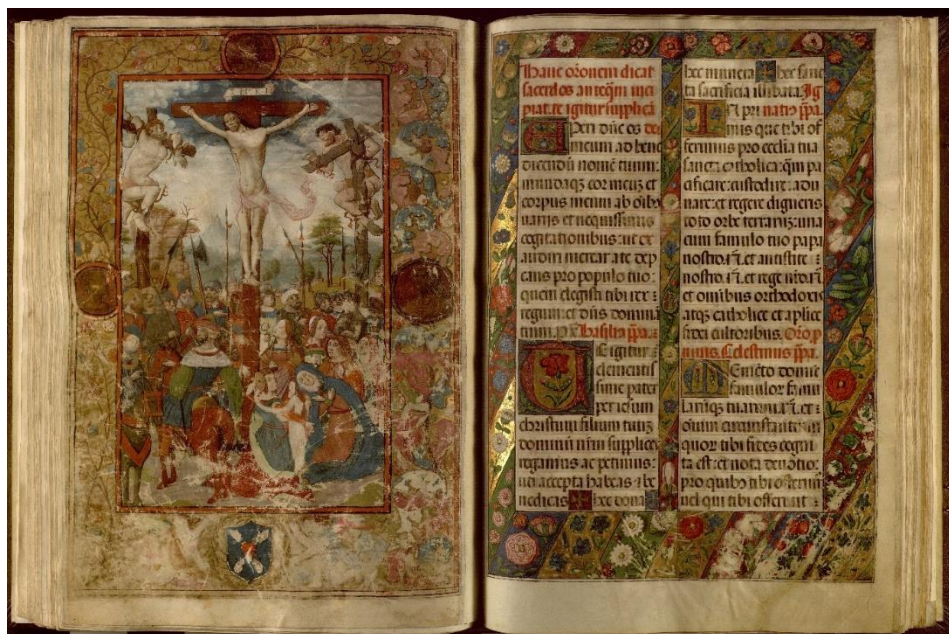 Hanc orõnem dicat
sacerdos anteq̃m inci
piat. te igitur supplica
Aperi dñe os
meum ad bene
dicendũ nomẽ tuum:
mundaq₃ cor meuz et
corpus meum ab oĩbꝰ
uanis et nequissimis
cogitationibus: ut ex
audiri merear a te dep
cans pro populo tuo:
quem elegisti tibi
Te igitur
clementis
sime pater
per iesum
christum filium tuuz
dominũ nr̃m supplices
rogamus ac petimus:
uti accepta habeas ⁊ be
nedicas hec dona
hec munera hec sanc
ta sacrificia illibata.
In pri
mis que tibi of
ferimus pro ecclĩa tua
sancta catholica: q̃m pa
cificare: custodire: adu
nare: et regere digneris
toto orbe terrarũ: una
cum famulo tuo papa
nostro et antistite
nostro et rege nr̃o
et omnibus orthodoxis
atq₃ catholice et aplice
fidei cultoribus.
Celestinus
Memẽto domine
famulor famu
larũq₃ tuarum et
oĩum circumstantium
quor tibi fides cogni
ta est: et nota deuotio:
pro quibꝰ tibi offerimꝰ
uel qui tibi offerunt